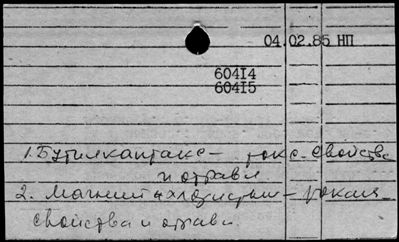 04.02.85 НП
60414
60415
1. Бутилкаптакс – токс. свойства
и отравл
2. Магний хлористый – токсич
свойства и отравл